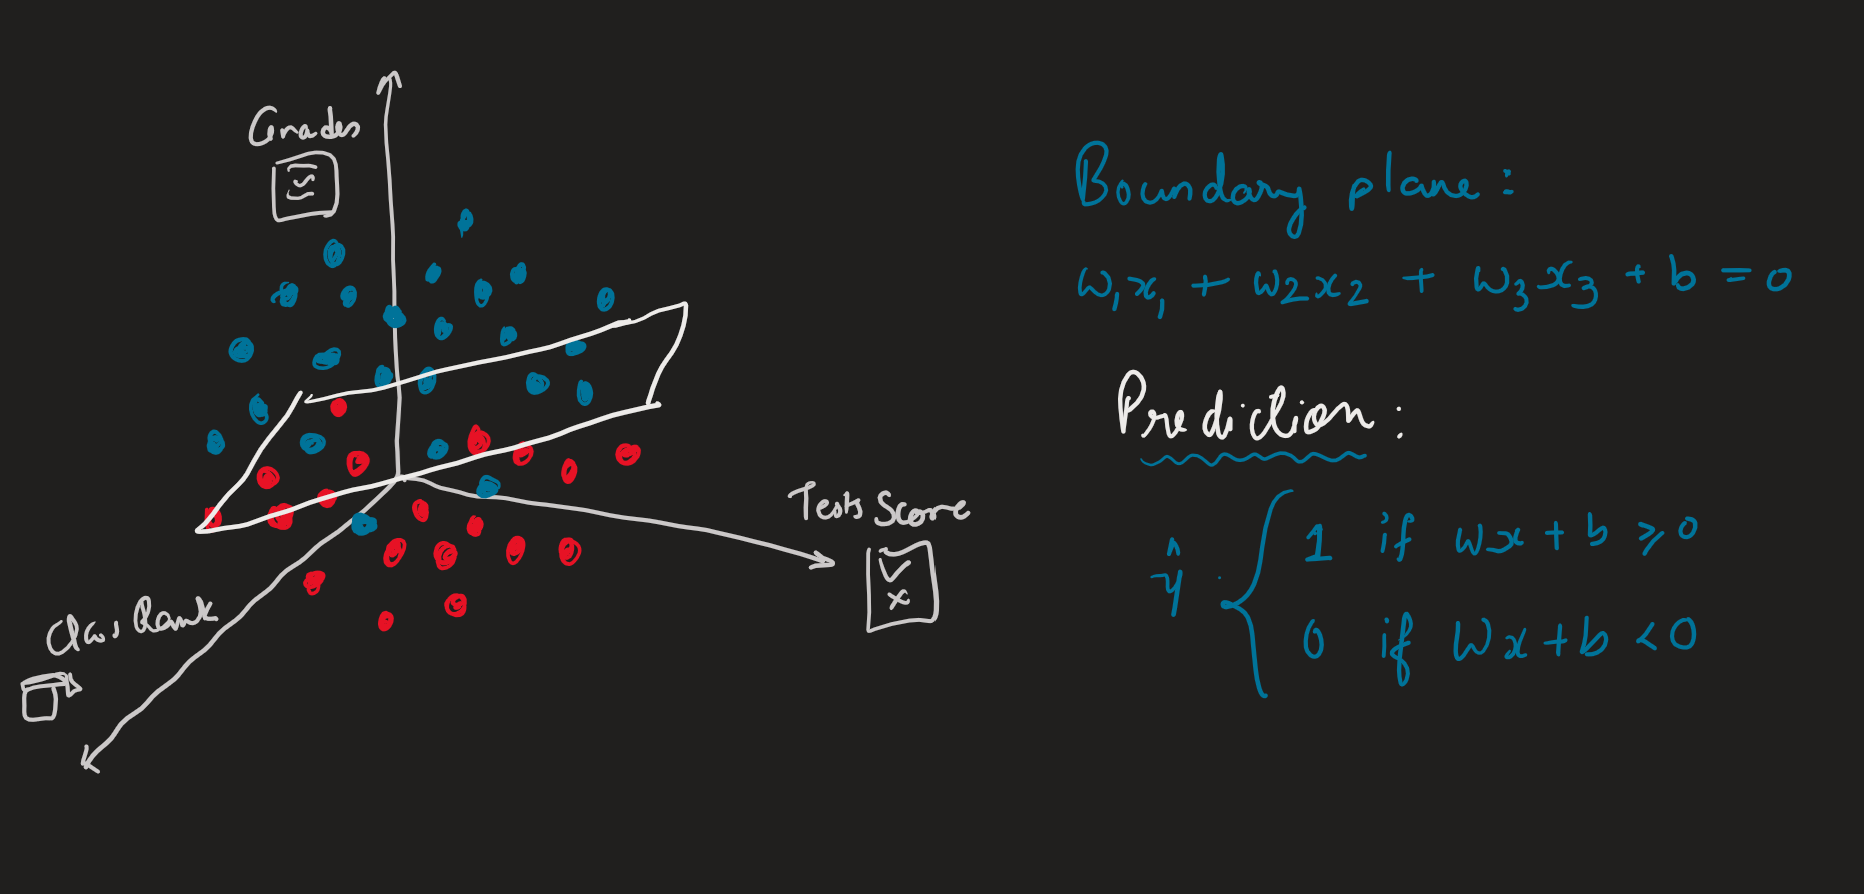 Grades
Tests Score
Class Rank
Boundary plane:
w₁x₁ + w₂x₂ + w₃x₃ + b = 0
Prediction:
ŷ { 1 if wx + b ⩾ 0
0 if Wx + b < 0